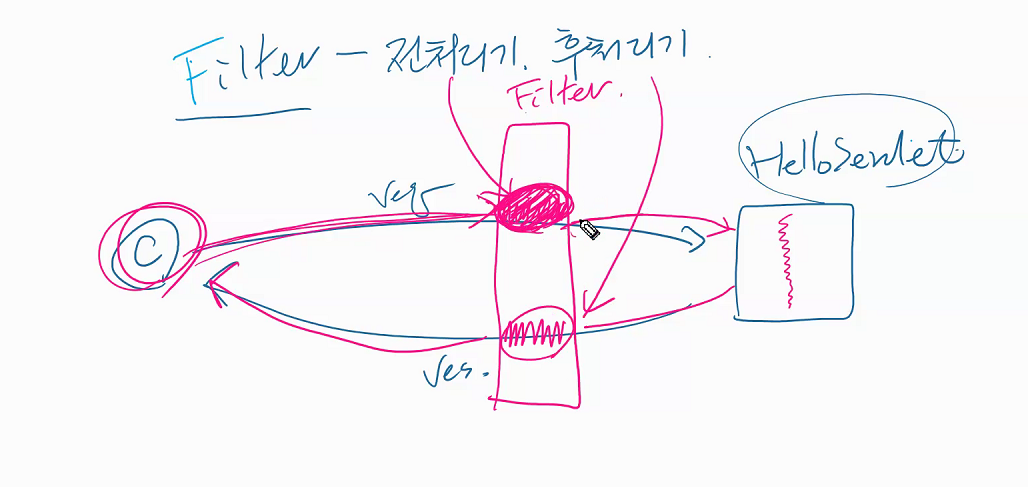 Filter - 전처리기. 후처리기.
Filter.
HelloServlet
req
C
res.